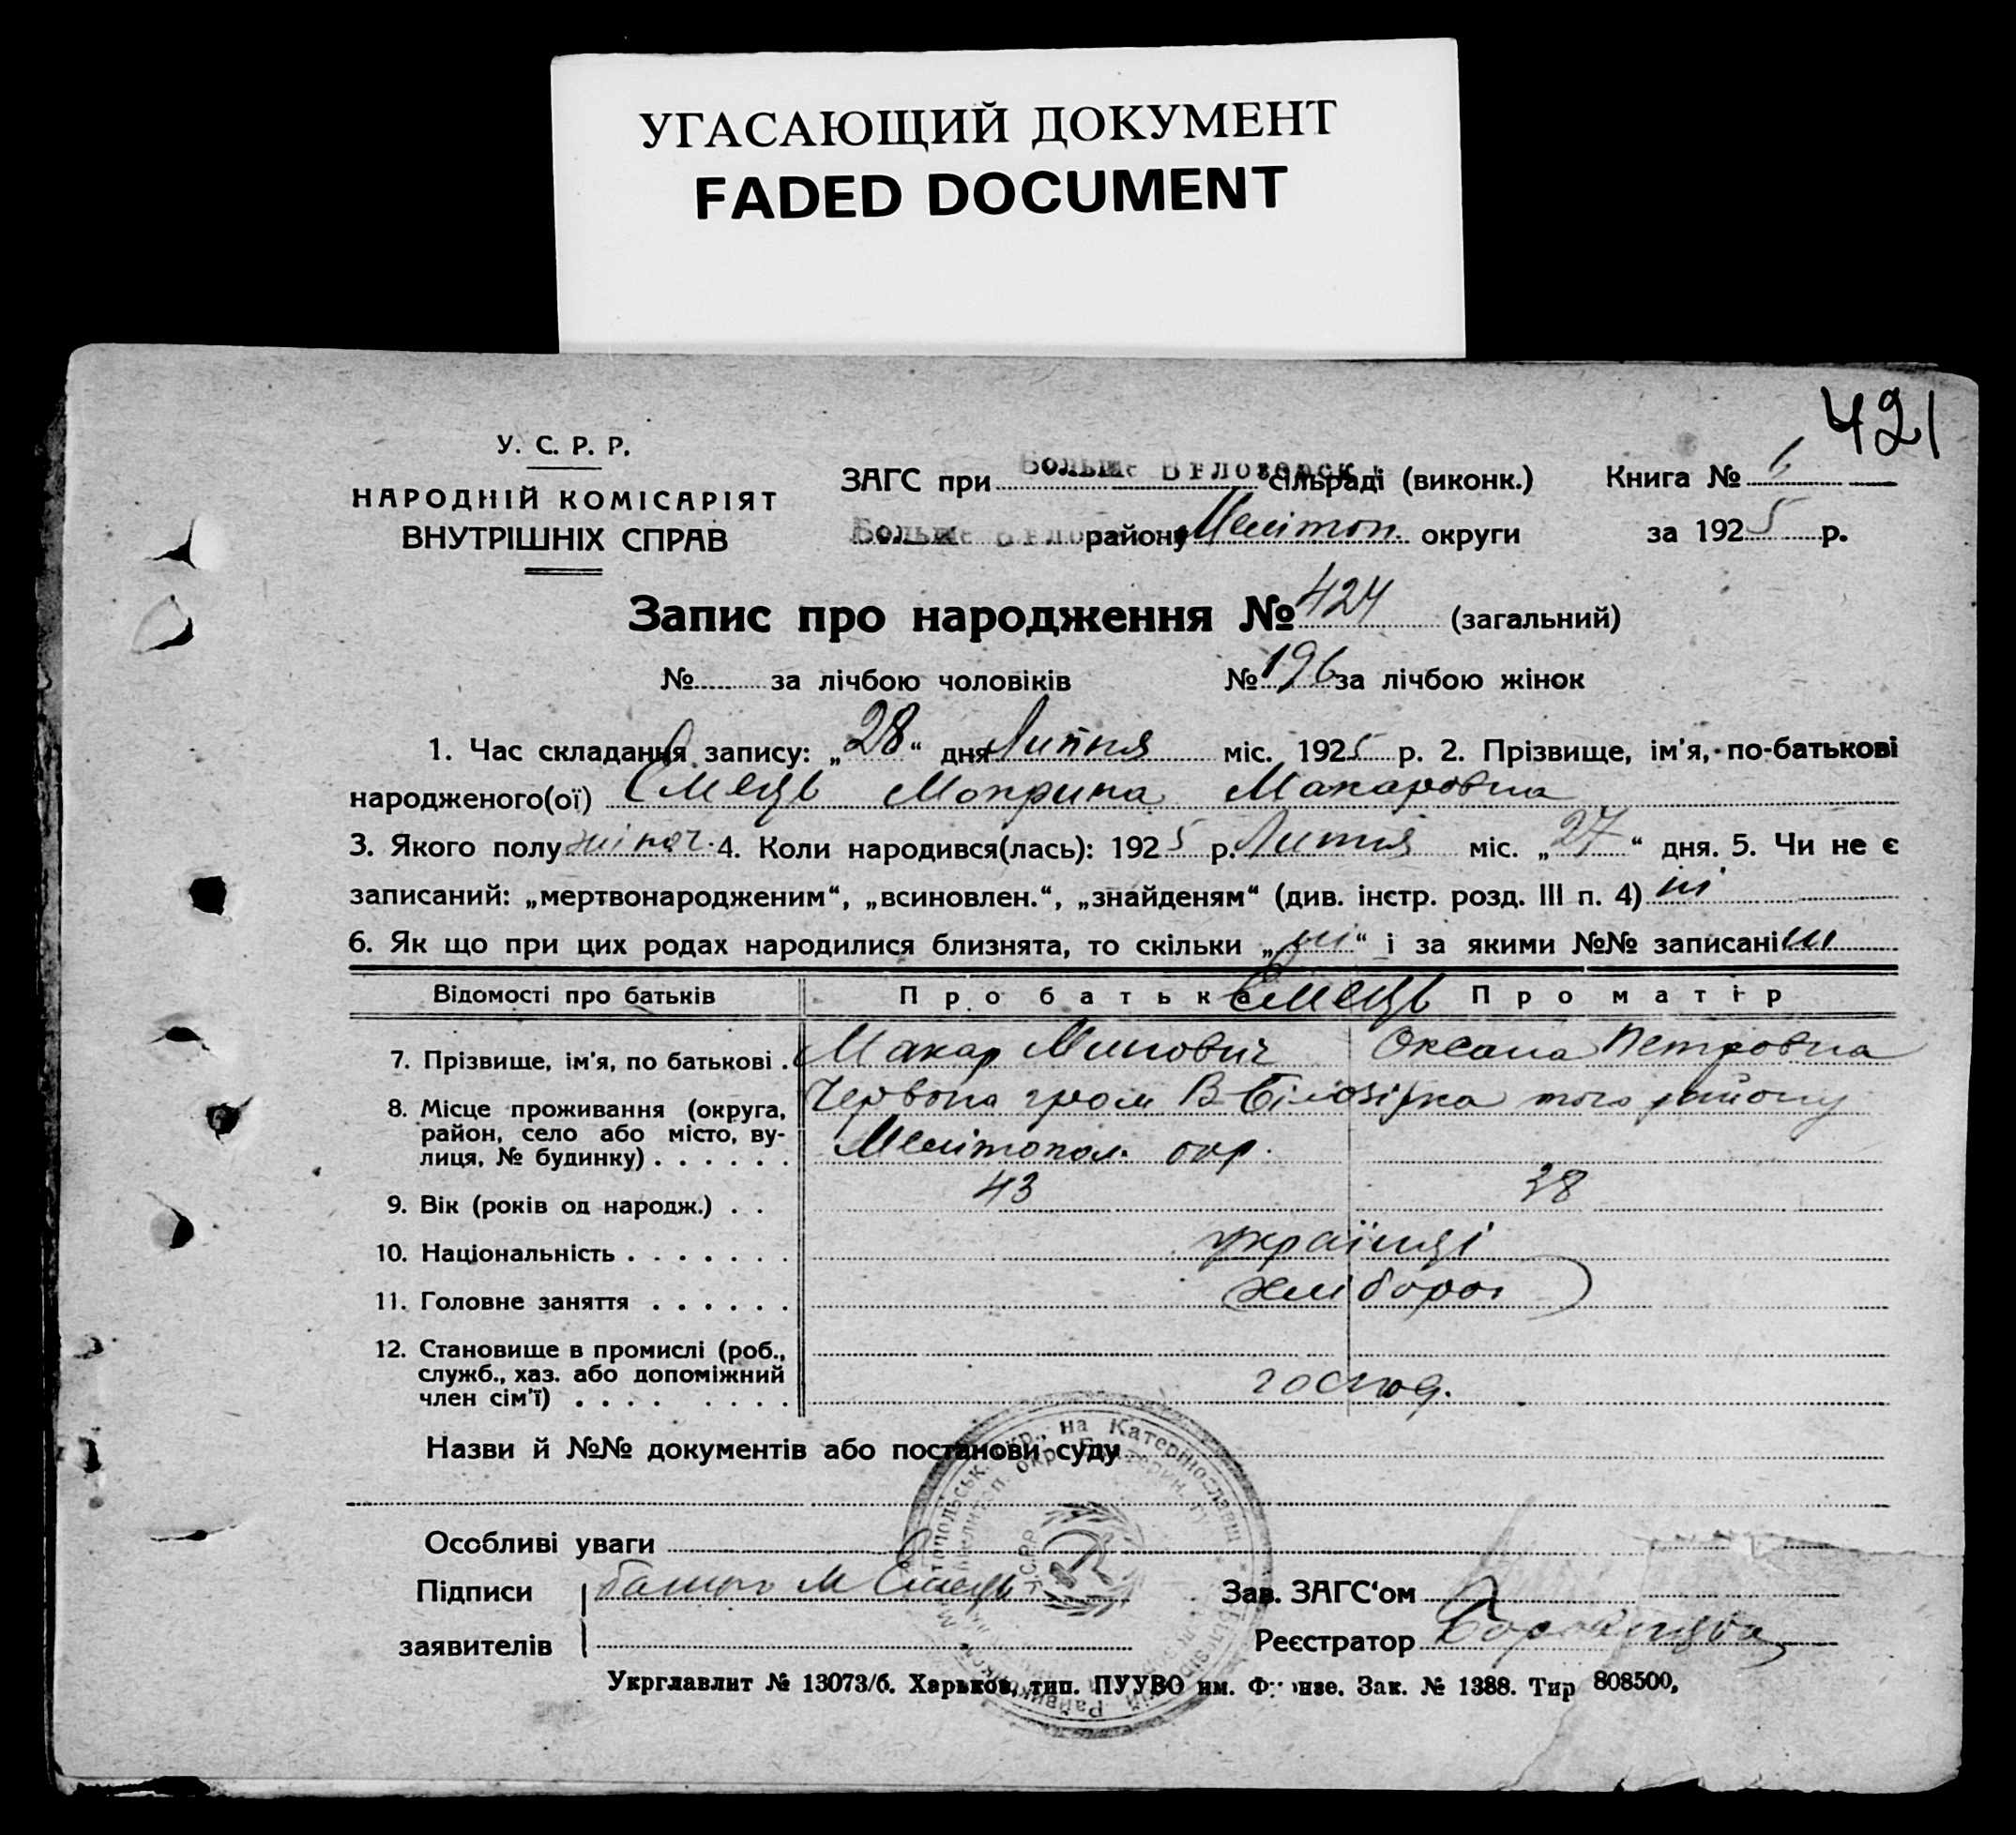 УГАСАЮЩИЙ ДОКУМЕНТ
FADED DOCUMENT
421
У. С. Р. Р.
НАРОДНІЙ КОМІСАРІЯТ
ВНУТРІШНІХ СПРАВ
ЗАГС при Больше Бѣлозерск. сільраді (виконк.) Книга № 6
Больше Бѣло району Мелітоп. округи за 1925 р.
Запис про народження № 424 (загальний)
№ за лічбою чоловіків № 196 за лічбою жінок
1. Час складання запису: „28“ дня Липня міс. 1925 р. 2. Прізвище, ім'я, по-батькові
народженого(ої) Ємець Мокрина Макаровна
3. Якого полу жіноч. 4. Коли народився(лась): 1925 р. Липня міс. „27“ дня. 5. Чи не є
записаний: „мертвонародженим“, „всиновлен.“, „знайденям“ (див. інстр. розд. III п. 4) ні
6. Як що при цих родах народилися близнята, то скільки „ні“ і за якими №№ записані ні
Відомості про батьків Про батька Ємець Про матір
7. Прізвище, ім'я, по батькові . Макар Минович Оксана Петровна
8. Місце проживання (округа, Червона гром В-Білозірка того району
район, село або місто, ву-
лиця, № будинку) . . . . . . Мелітопол. окр.
9. Вік (років од народж.) . . 43 38
10. Національність . . . . . . . українці
11. Головне заняття . . . . . . хлібороб
12. Становище в промислі (роб.,
служб., хаз. або допоміжний
член сім'ї) . . . . . . . . господ.
Назви й №№ документів або постанови суду
Особливі уваги
Підписи батько М Ємець Зав. ЗАГС'ом
заявителів Реєстратор
Укрглавлит № 13073/б. Харьков, тип. ПУУВО им. Фрунзе. Зак. № 1388. Тир 808500,